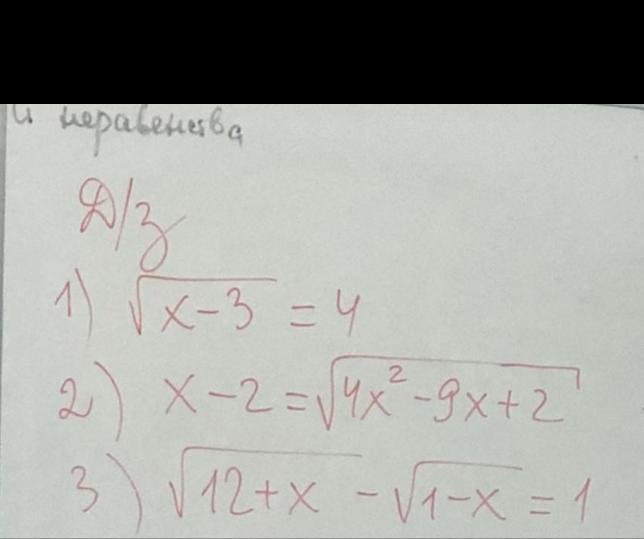 и неравенства
Д/з
1) √(x-3) = 4
2) x-2=√(4x²-9x+2)
3) √(12+x) - √(1-x) = 1